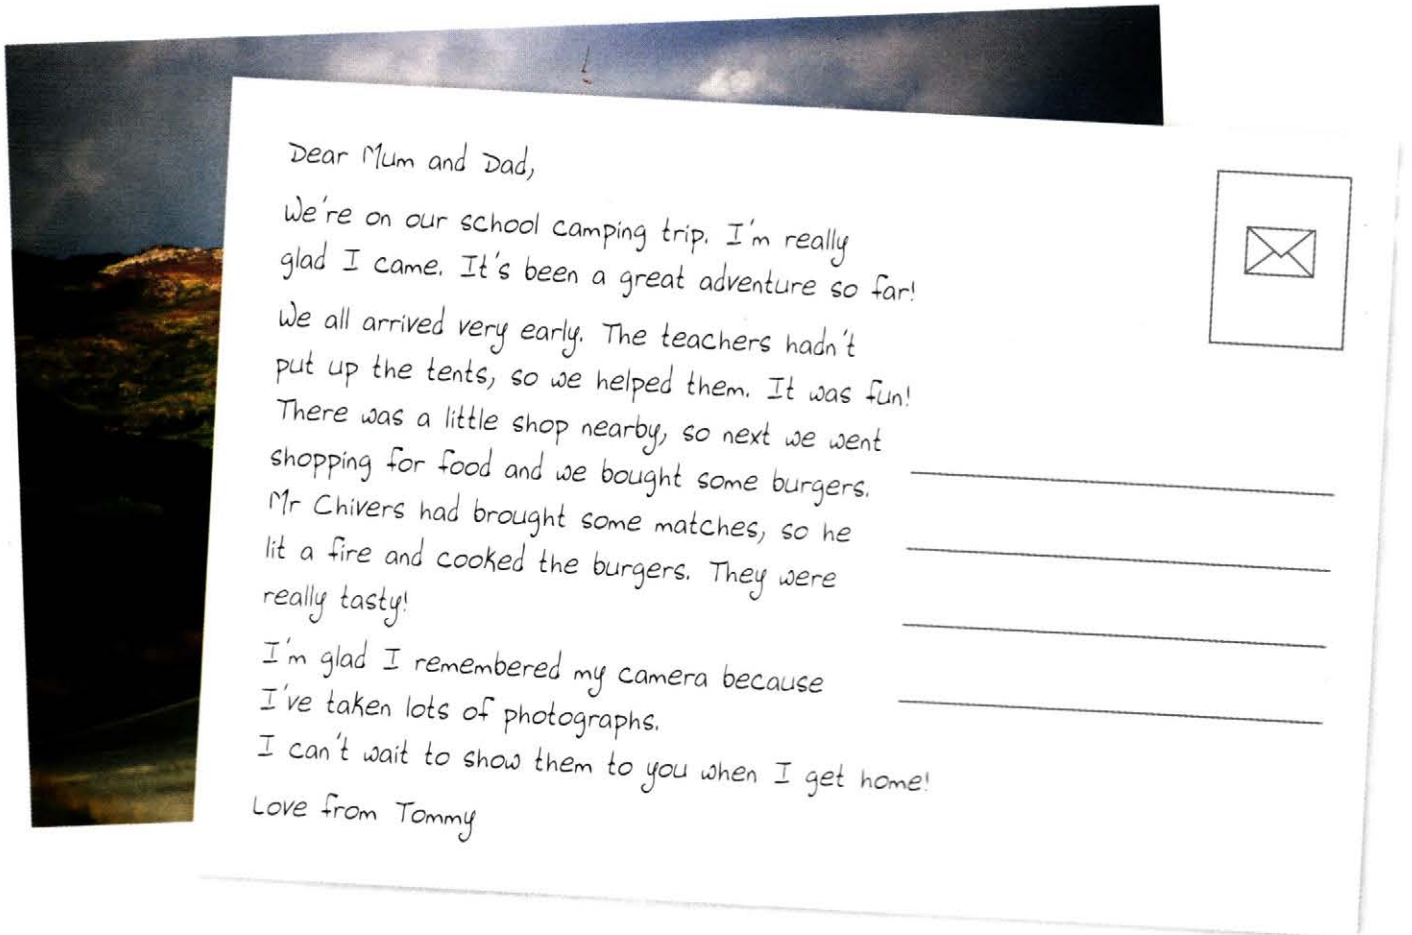 Dear Mum and Dad,
We're on our school camping trip. I'm really
glad I came. It's been a great adventure so far!
We all arrived very early. The teachers hadn't
put up the tents, so we helped them. It was fun!
There was a little shop nearby, so next we went
shopping for food and we bought some burgers.
Mr Chivers had brought some matches, so he
lit a fire and cooked the burgers. They were
really tasty!
I'm glad I remembered my camera because
I've taken lots of photographs.
I can't wait to show them to you when I get home!
Love from Tommy